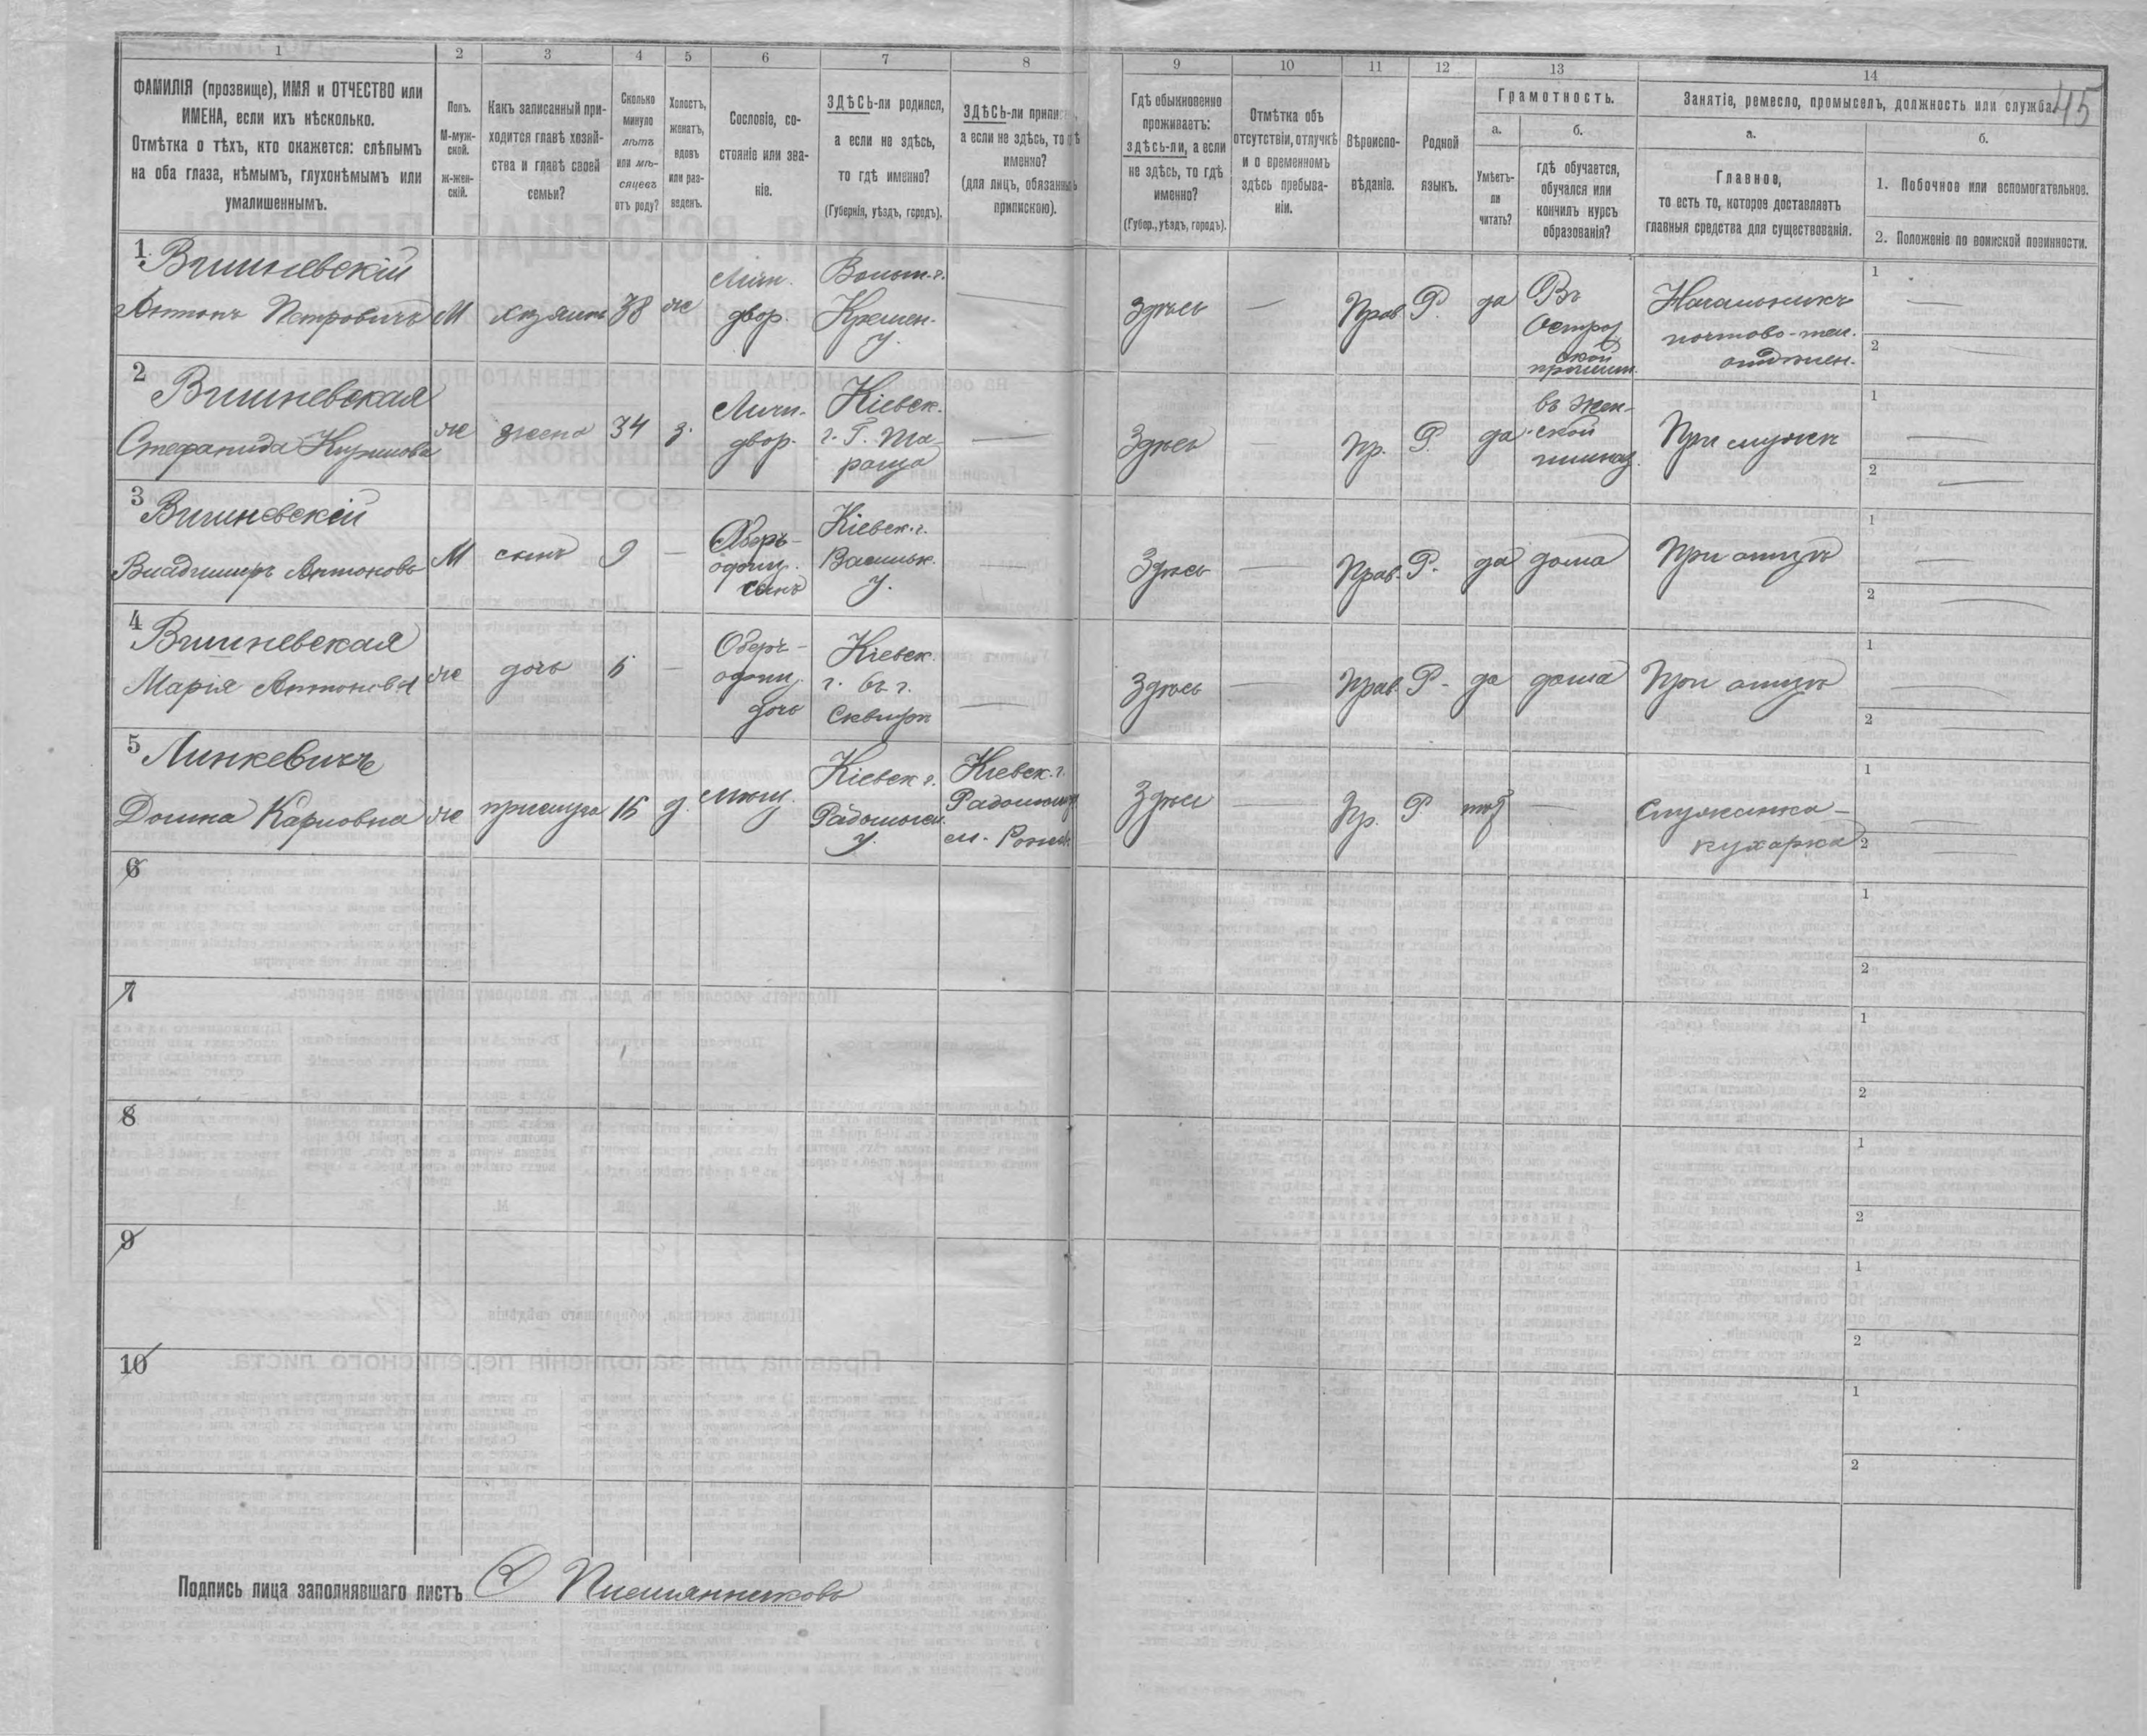 45
1
ФАМИЛІЯ (прозвище), ИМЯ и ОТЧЕСТВО или
ИМЕНА, если ихъ нѣсколько.
Отмѣтка о тѣхъ, кто окажется: слѣпымъ
на оба глаза, нѣмымъ, глухонѣмымъ или
умалишеннымъ.
2
Полъ.
М-муж-
ской.
ж-жен-
скій.
3
Какъ записанный при-
ходится главѣ хозяй-
ства и главѣ своей
семьи?
4
Сколько
минуло
лѣтъ
или мѣ-
сяцевъ
отъ роду?
5
Холостъ,
женатъ,
вдовъ
или раз-
веденъ.
6
Сословіе, со-
стояніе или зва-
ніе.
7
ЗДѢСЬ-ли родился,
а если не здѣсь,
то гдѣ именно?
(Губернія, уѣздъ, городъ).
8
ЗДѢСЬ-ли
а если не здѣсь, то
именно?
(для лицъ,
припискою).
9
Гдѣ обыкновенно
проживаетъ:
здѣсь-ли, а если
не здѣсь, то гдѣ
именно?
(Губер., уѣздъ, городъ).
10
Отмѣтка объ
отсутствіи, отлучкѣ
и о временномъ
здѣсь пребыва-
ніи.
11
Вѣроиспо-
вѣданіе.
12
Родной
языкъ.
13
Грамотность.
а.
Умѣетъ-
ли
читать?
б.
гдѣ обучается,
обучался или
кончилъ курсъ
образованія?
14
Занятіе, ремесло, промыселъ, должность или служба.
а.
Главное,
то есть то, которое доставляетъ
главныя средства для существованія.
б.
1. Побочное или вспомогательное.
2. Положеніе по воинской повинности.
1
Вишневскій
Антонъ Петровичъ
М
хозяинъ
38
ж
Личн.
двор.
Волын. г.
Кремен.
у.
Здѣсь
—
Прав.
Р.
да
Въ
Острог
ской
Начальникъ
почтово-тел.
1 —
2 —
2
Вишневская
Степанида Кирилова
ж
жена
34
з.
Личн.
двор.
Кіевск.
г. Г. Та-
раща
—
Здѣсь
—
Пр.
Р.
да
въ жен-
ской
гимназ.
При мужѣ
1 —
2 —
3
Вишневскій
Владиміръ Антоновъ
М
сынъ
9
—
Оберъ-
офиц.
сынъ
Кіевск. г.
Васильк.
у.
—
Здѣсь
—
Прав.
Р.
да
дома
При отцѣ
1 —
2 —
4
Вишневская
Марія Антонова
ж
дочь
6
—
Оберъ-
офиц.
дочь
Кіевск.
г. въ г.
Сквирѣ
—
Здѣсь
—
Прав.
Р.
да
дома
При отцѣ
1 —
2 —
5
Линкевичъ
Домна Карповна
ж
прислуга
д.
мѣщ.
Кіевск. г.
Радомысл.
у.
Кіевск. г.
Здѣсь
—
Пр.
Р
—
служанка-
кухарка
1 —
2 —
6
1
2
7
1
2
8
1
2
9
1
2
10
1
2
Подпись лица заполнявшаго листъ Племянниковъ